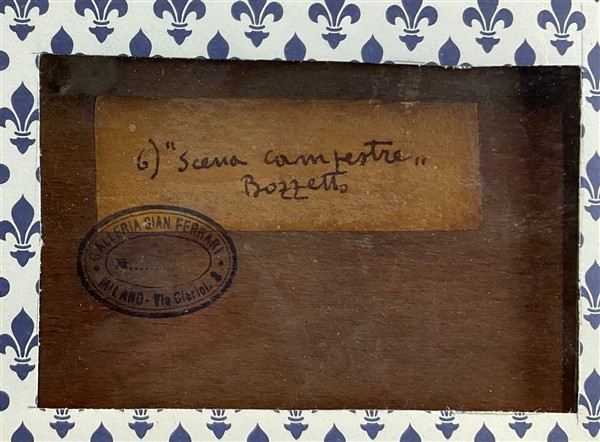 6) "Scena campestre„
Bozzetto
GALLERIA GIAN FERRARI
N.......
MILANO - Via Clerici, 8